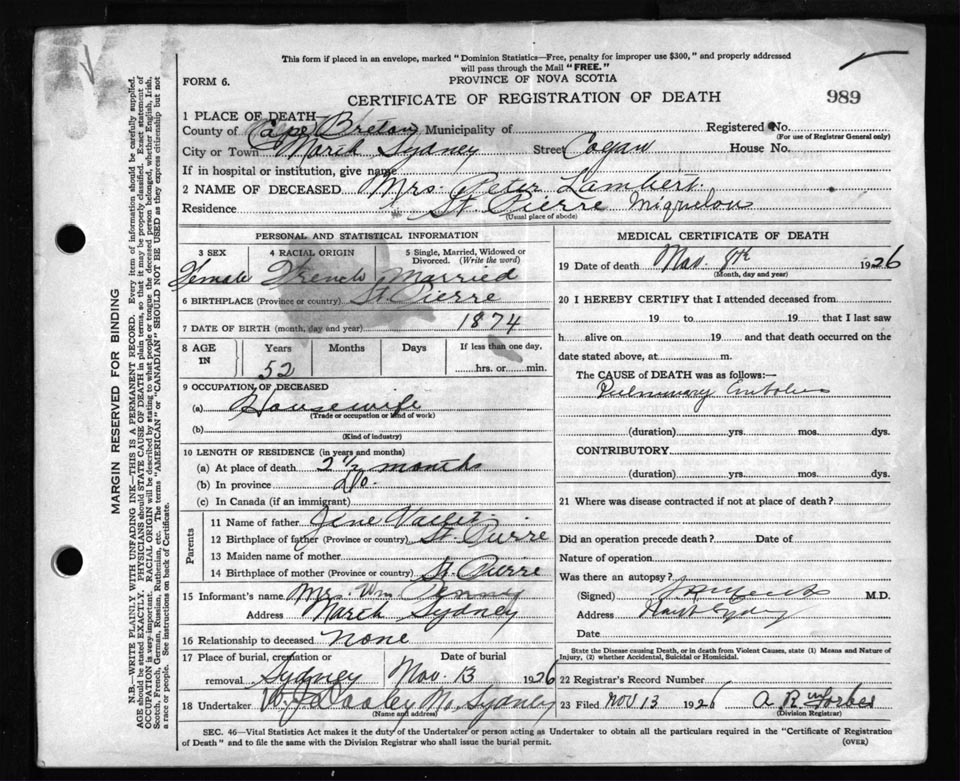 This form if placed in an envelope, marked "Dominion Statistics—Free, penalty for improper use $300," and properly addressed
will pass through the Mail "FREE."
FORM 6.
PROVINCE OF NOVA SCOTIA
CERTIFICATE OF REGISTRATION OF DEATH
989
1 PLACE OF DEATH—
County of Cape Breton Municipality of Registered No.
(For use of Registrar General only)
City or Town North Sydney Street Cogan House No.
If in hospital or institution, give name
2 NAME OF DECEASED Mrs. Peter Lambert
Residence St. Pierre Miquelon
(Usual place of abode)
PERSONAL AND STATISTICAL INFORMATION
3 SEX 4 RACIAL ORIGIN 5 Single, Married, Widowed or
Divorced. (Write the word)
Female French Married
6 BIRTHPLACE (Province or country) St. Pierre
7 DATE OF BIRTH (month, day and year) 1874
8 AGE IN Years Months Days If less than one day,
52 hrs. or min.
9 OCCUPATION OF DECEASED
(a) Housewife
(Trade or occupation or kind of work)
(b)
(Kind of industry)
10 LENGTH OF RESIDENCE (in years and months)
(a) At place of death 2 1/2 months
(b) In province Do.
(c) In Canada (if an immigrant)
Parents
11 Name of father
12 Birthplace of father (Province or country) St. Pierre
13 Maiden name of mother
14 Birthplace of mother (Province or country) St. Pierre
15 Informant's name Mrs. Wm Penny
Address North Sydney
16 Relationship to deceased None
17 Place of burial, cremation or Date of burial
removal Sydney Nov. 13 1926
18 Undertaker W. J. Dooley N. Sydney
(Name and address)
MEDICAL CERTIFICATE OF DEATH
19 Date of death Nov. 9th 1926
(Month, day and year)
20 I HEREBY CERTIFY that I attended deceased from
19 to 19 that I last saw
h alive on 19 and that death occurred on the
date stated above, at m.
The CAUSE of DEATH was as follows:—
Pulmonary Embolus
(duration) yrs. mos. dys.
CONTRIBUTORY
(duration) yrs. mos. dys.
21 Where was disease contracted if not at place of death?
Did an operation precede death? Date of
Nature of operation
Was there an autopsy?
(Signed) M.D.
Address North Sydney
Date
State the Disease causing Death, or in death from Violent Causes, state (1) Means and Nature of
Injury, (2) whether Accidental, Suicidal or Homicidal.
22 Registrar's Record Number
23 Filed NOV 13 1926 A. R. Forbes
(Division Registrar)
SEC. 46—Vital Statistics Act makes it the duty of the Undertaker or person acting as Undertaker to obtain all the particulars required in the "Certificate of Registration
of Death" and to file the same with the Division Registrar who shall issue the burial permit.
(OVER)
MARGIN RESERVED FOR BINDING
N.B.—WRITE PLAINLY WITH UNFADING INK—THIS IS A PERMANENT RECORD. Every item of information should be carefully supplied.
AGE should be stated EXACTLY. PHYSICIANS should STATE CAUSE OF DEATH in plain terms, so that it may be properly classified. Exact statement of
OCCUPATION is very important. RACIAL ORIGIN will be described by stating to what people or tongue the deceased person belonged, whether English, Irish,
Scotch, French, German, Russian, Ruthenian, etc. The terms "AMERICAN" or "CANADIAN" SHOULD NOT BE USED as they express citizenship but not
a race or people. See instructions on back of Certificate.